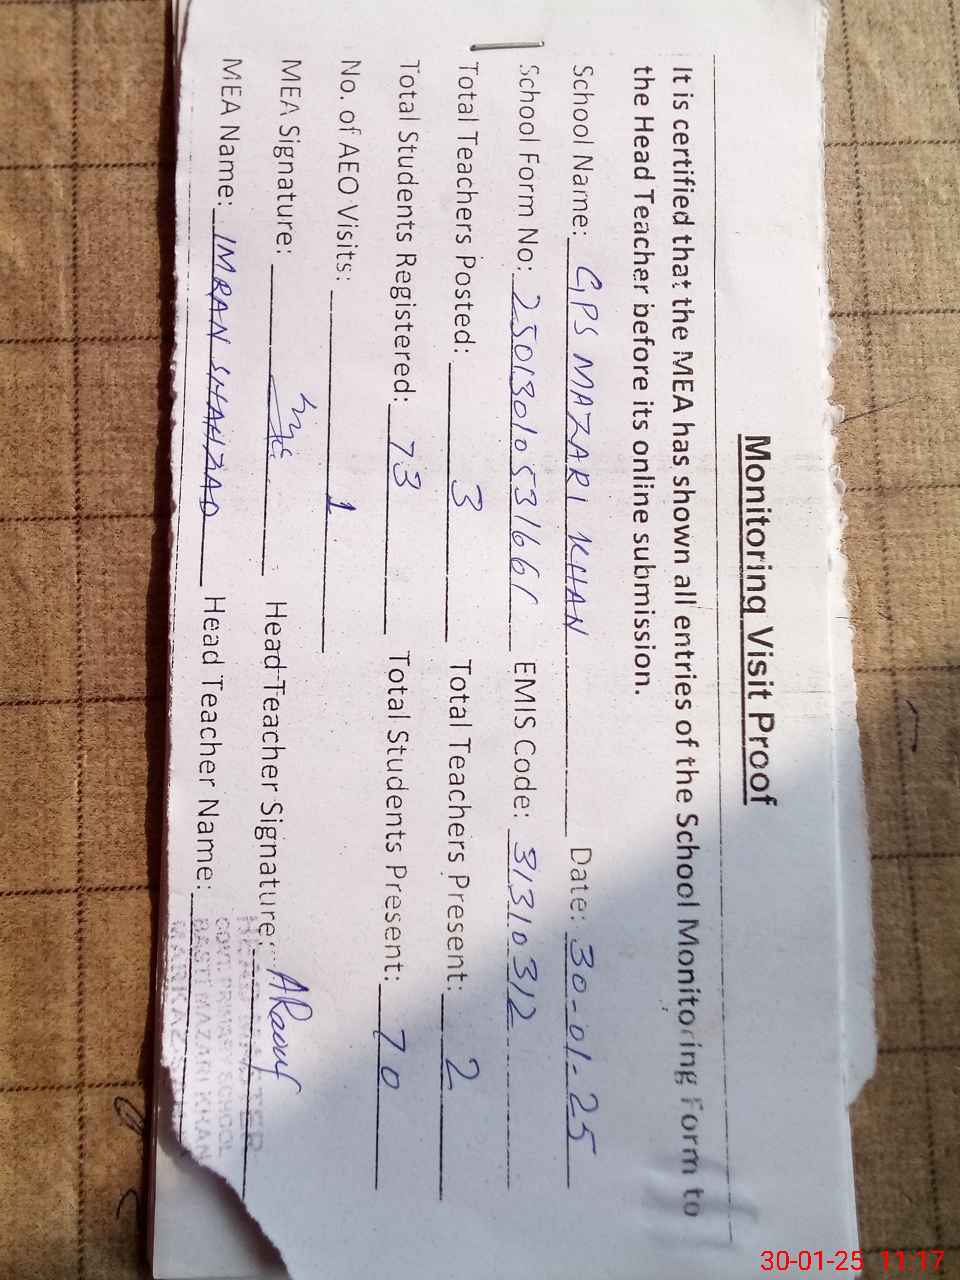 Monitoring Visit Proof
It is certified that the MEA has shown all entries of the School Monitoring Form to
the Head Teacher before its online submission.
School Name: GPS MAZARI KHAN Date: 30-01-25
School Form No: 25013010531661 EMIS Code: 31310312
Total Teachers Posted: 3 Total Teachers Present: 2
Total Students Registered: 73 Total Students Present: 70
No. of AEO Visits: 1
MEA Signature: Head Teacher Signature: ARaouf
MEA Name: IMRAN SHAHZAD Head Teacher Name:
HEAD MASTER
GOVT. PRIMARY SCHOOL
BASTI MAZARI KHAN
MARKAZ
30-01-25 11:17